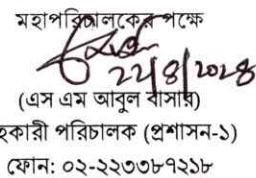 মহাপরিচালকের পক্ষে
22/8/2024
(এস এম আবুল বাসার)
হকারী পরিচালক (প্রশাসন-১)
ফোন: ০২-২২৩৩৮৭২১৮